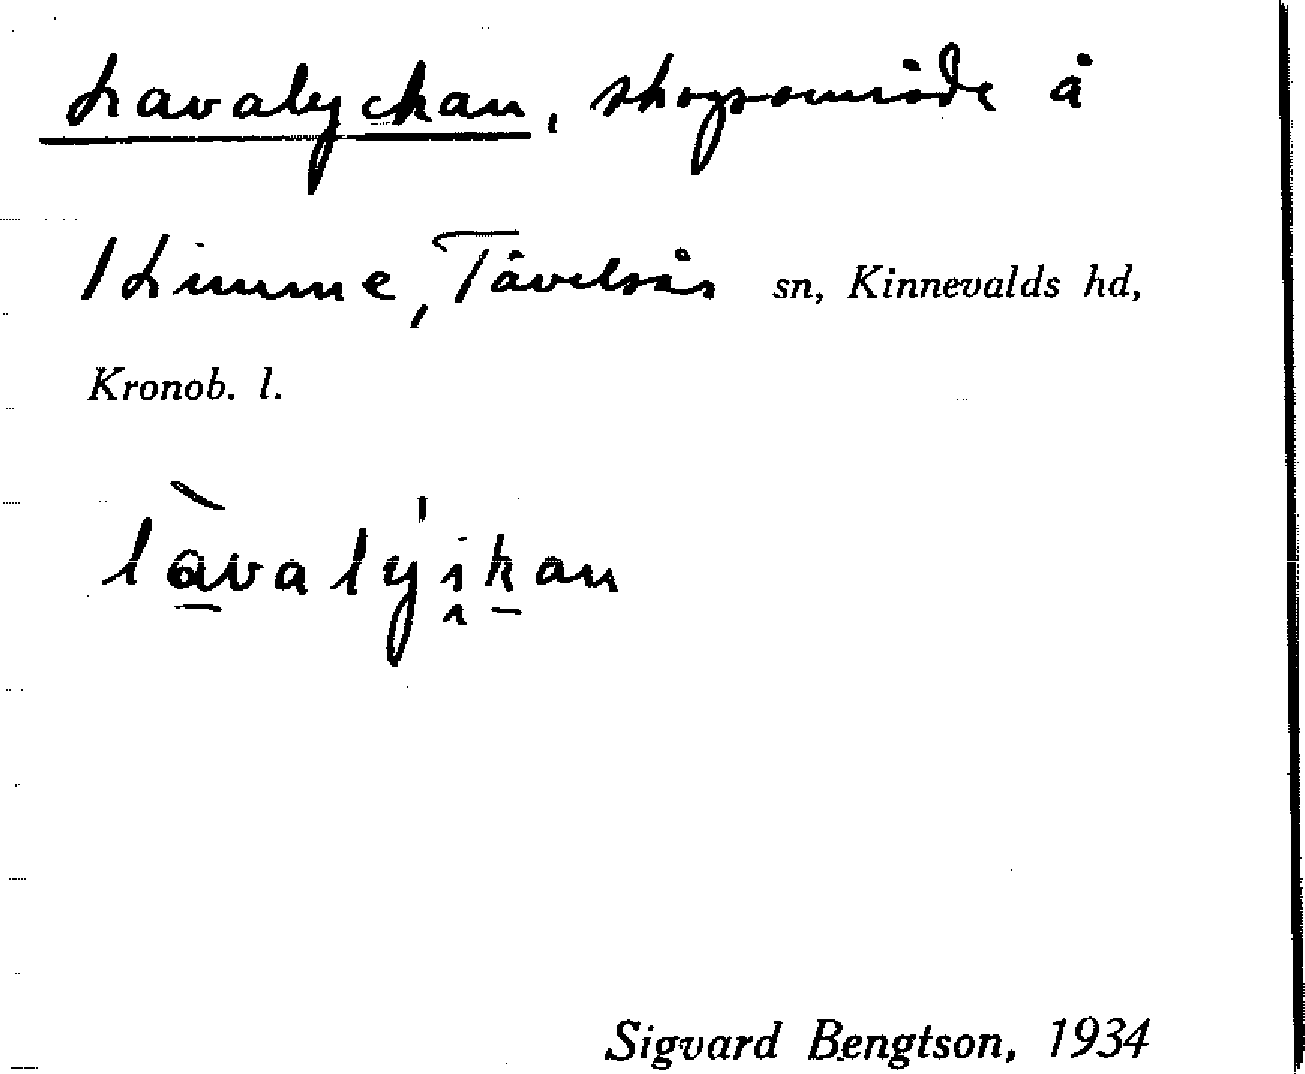 Lavalyckan, skogsområde å
Himme, Tävelsås sn, Kinnevalds hd,
Kronob. l.
Sigvard Bengtson, 1934